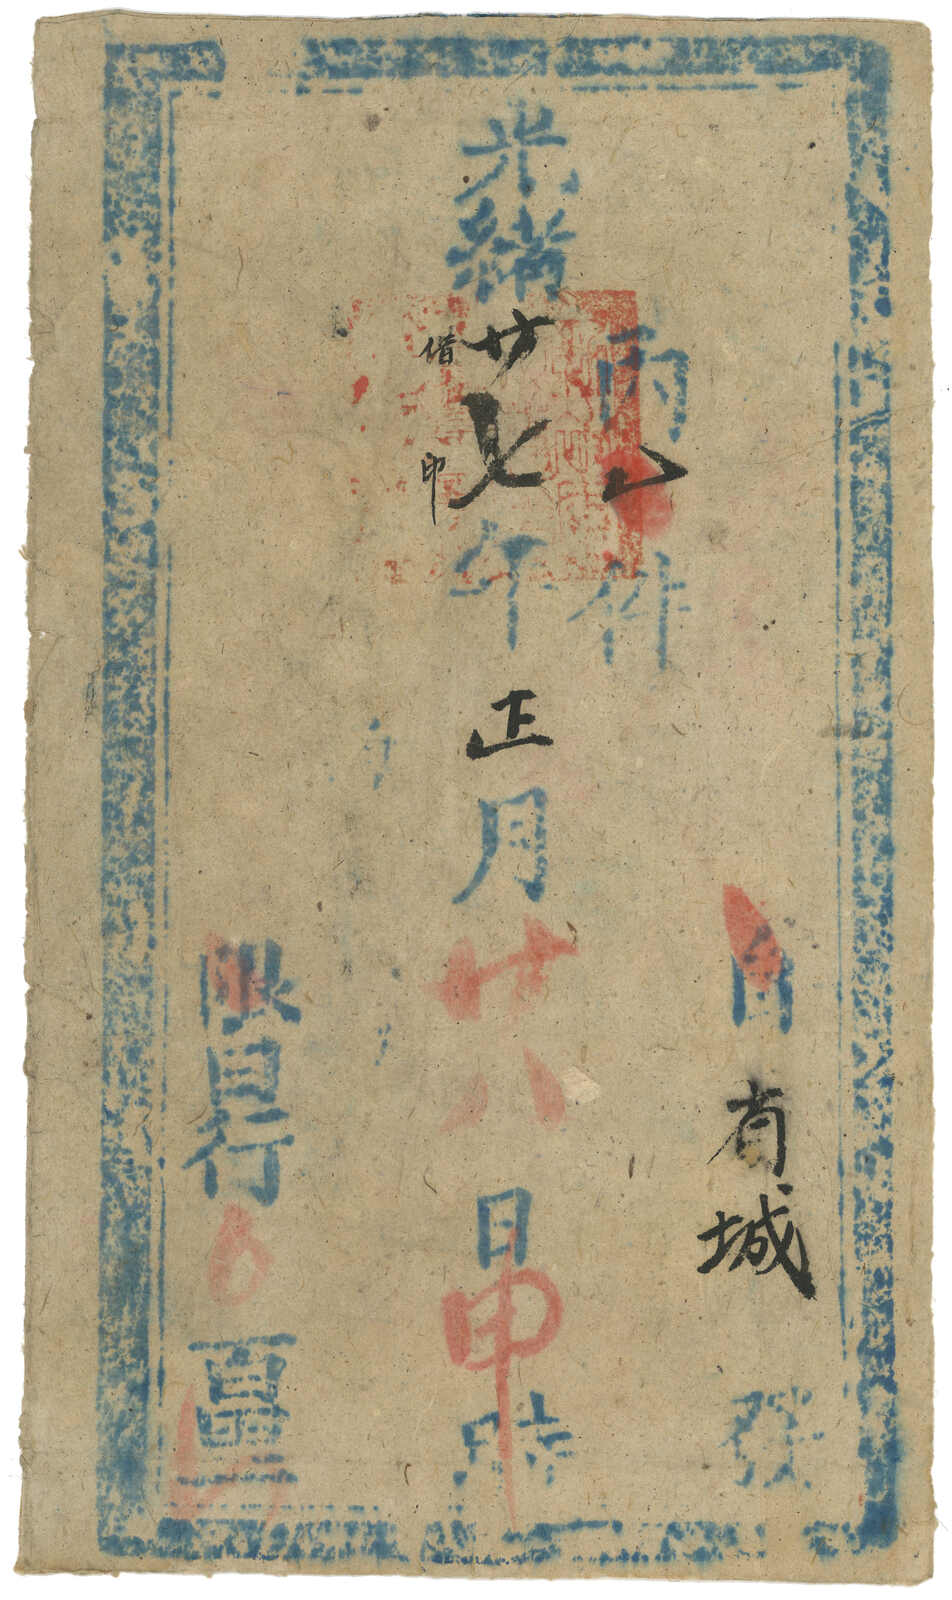 內一件
自省城發
光緒廿七年正月廿八日申時
借印
限日行百里